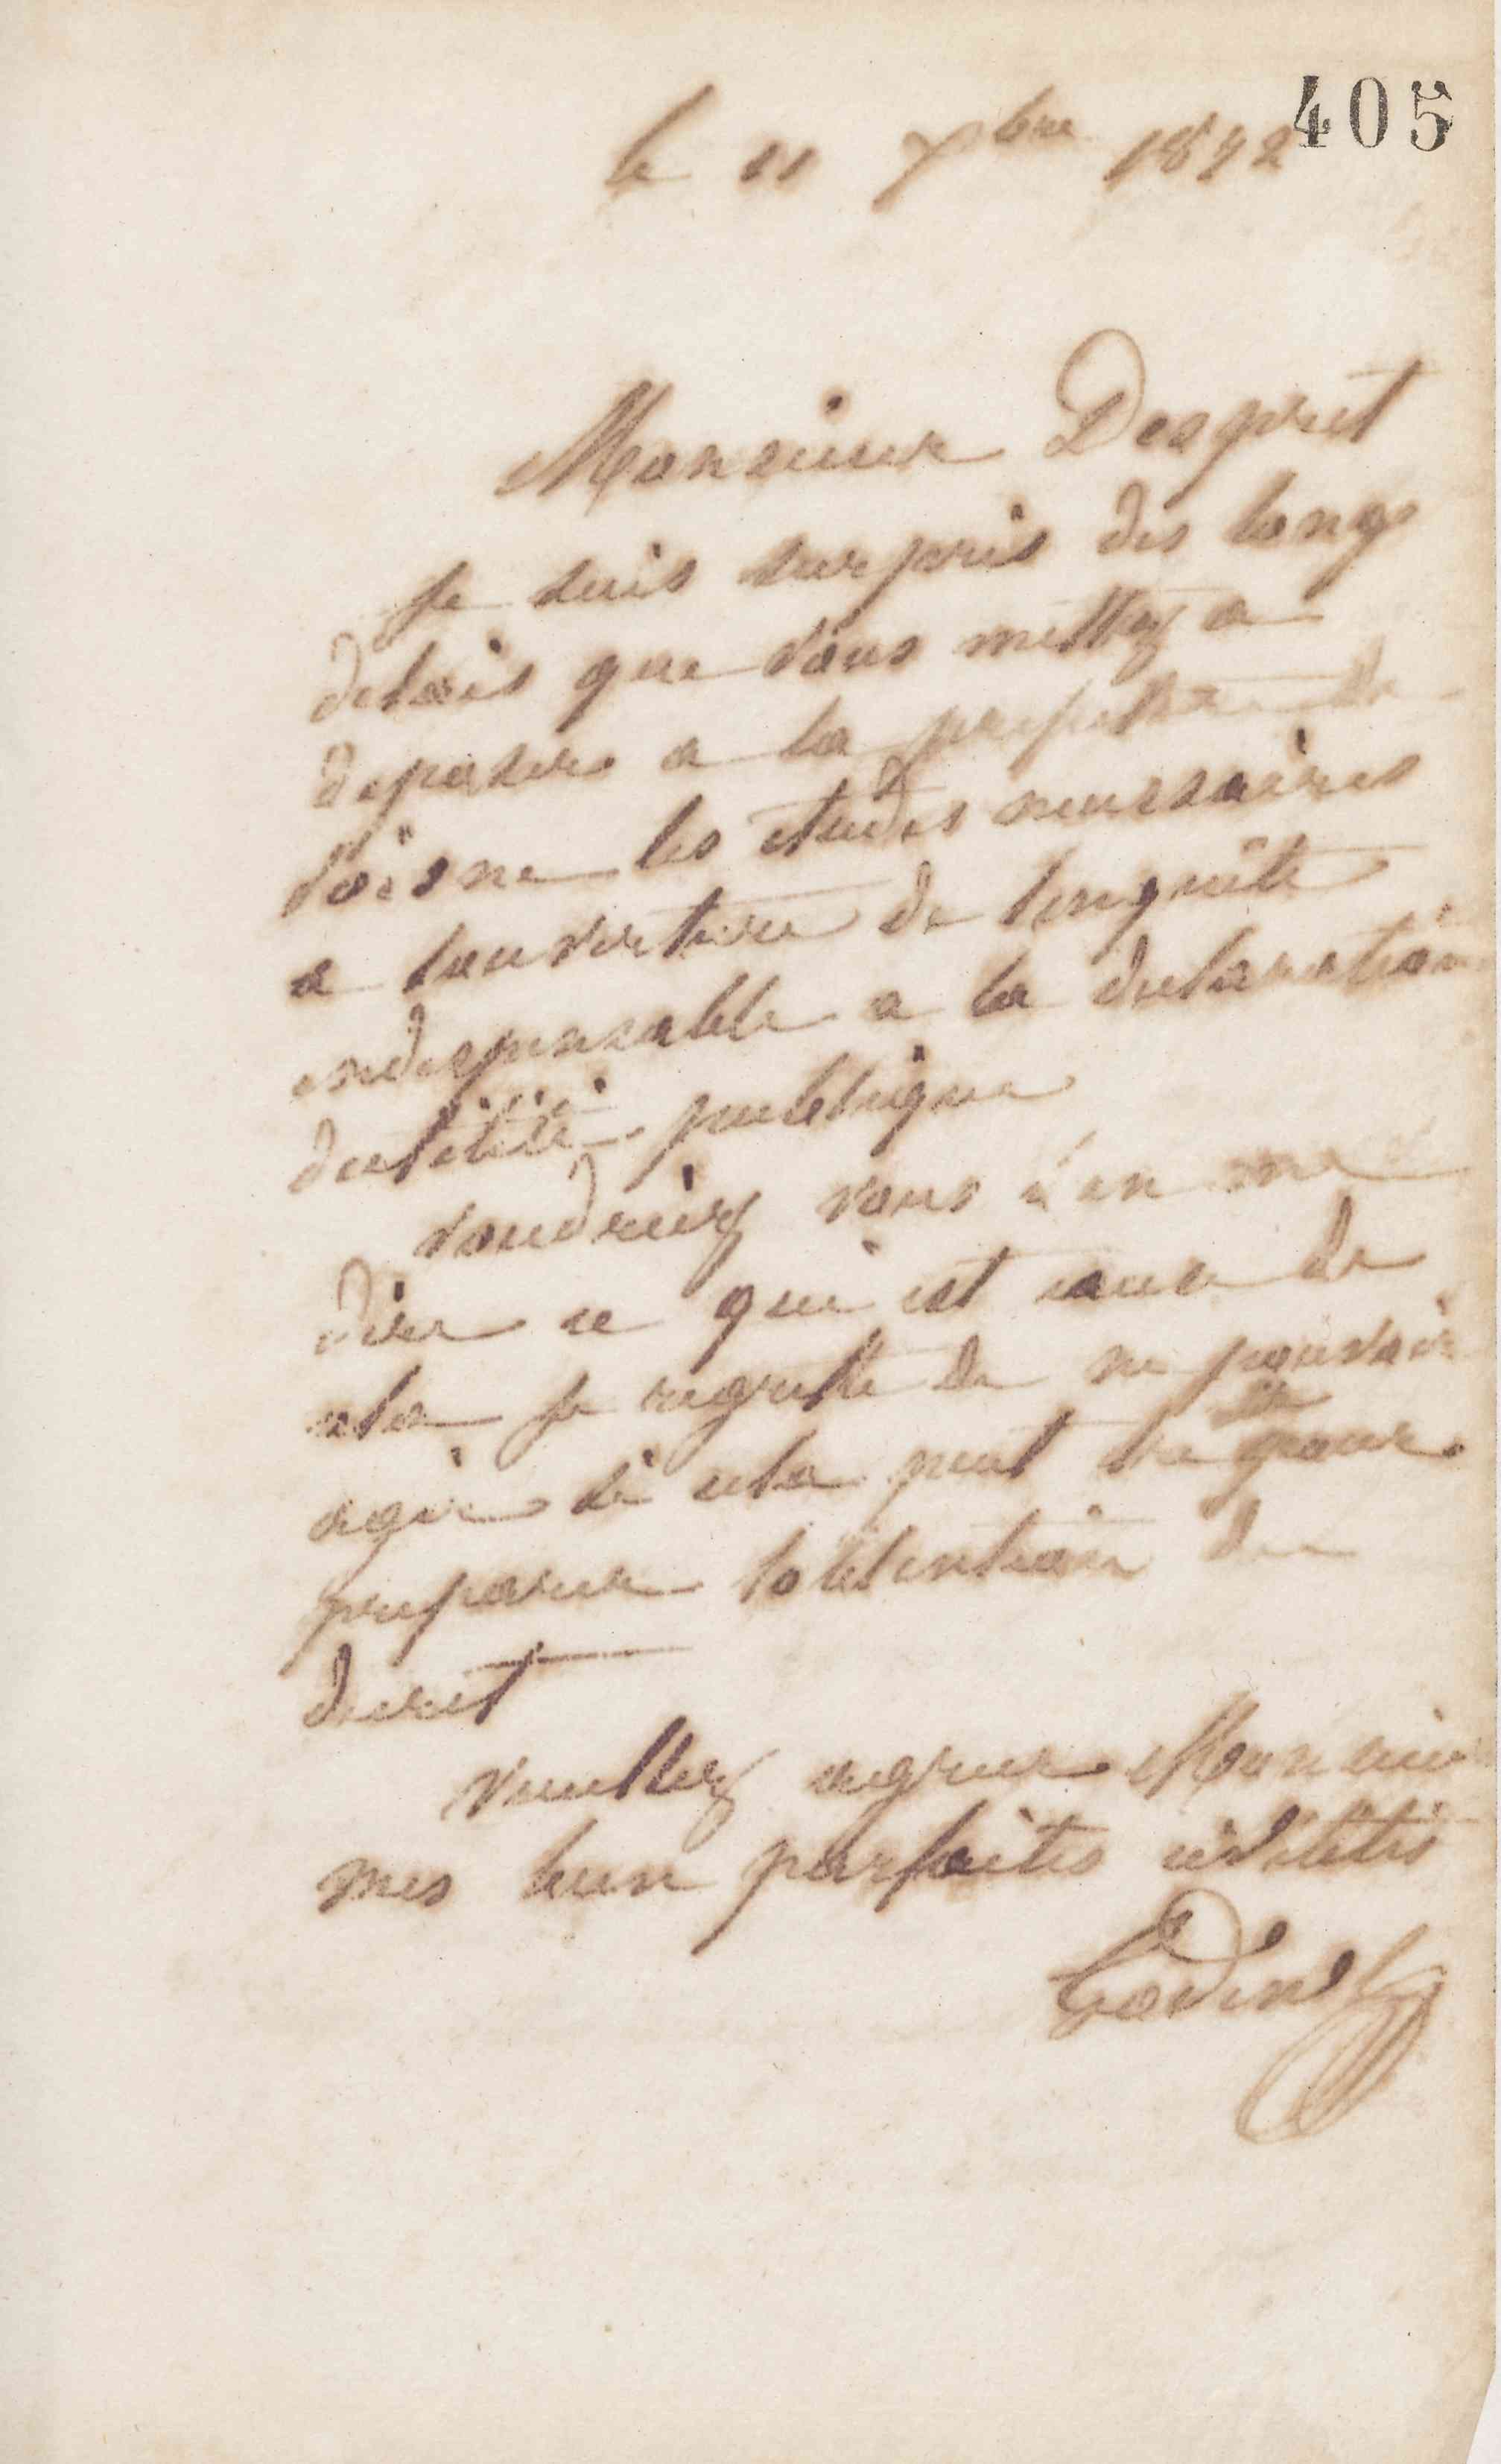 405
le 11 Xbre 1872
Monsieur Despret
Je suis surpris des longs
delais que vous mettez a
deposer a la prefecture de
l'aisne les etudes necessaires
a louverture de lenquête
indispensable a la declaration
dutilité publique
voudriez vous en me
dire ce qui est cause de
cela je regrette de ne pouvoir
agir si cela peut etre pour
preparer lobtention du
decret
veuillez agreer Monsieur
mes bien parfaites civilités
Godin